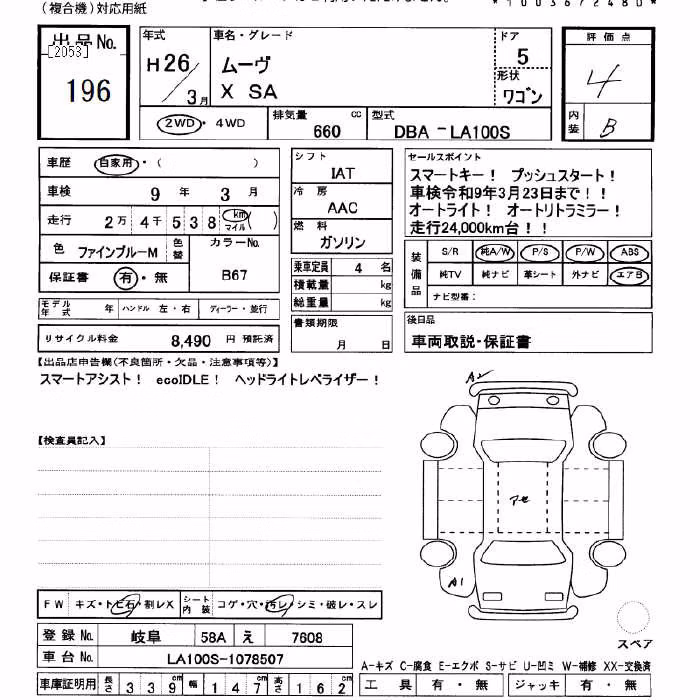 (複合機)対応用紙
*10036724 80*
出品No.
[2053]
196
年式
H26/3月
車名・グレード
ムーヴ
X SA
ドア
5
形状
ワゴン
評価点
4
内装
B
2WD・4WD
排気量 cc
660
型式
DBA-LA100S
車歴 自家用・( )
車検 9年 3月
走行 2万4千538 km マイル ( )
色 ファインブルーM 色替 カラーNo. B67
保証書 有・無
モデル年式 年 ハンドル 左・右 ディーラー・並行
リサイクル料金 8,490 円 預託済
シフト
IAT
冷房
AAC
燃料
ガソリン
乗車定員 4 名
積載量 kg
総重量 kg
書類期限
月 日
セールスポイント
スマートキー! プッシュスタート!
車検令和9年3月23日まで!!
オートライト! オートリトラミラー!
走行24,000km台!!
装備品 S/R 純A/W P/S P/W ABS
純TV 純ナビ 革シート 外ナビ エアB
ナビ型番:
後日品
車両取説・保証書
【出品店申告欄(不良箇所・欠品・注意事項等)】
スマートアシスト! ecoIDLE! ヘッドライトレベライザー!
【検査員記入】
アセ
A1
FW キズ・トビ石・割レX シート内装 コゲ・穴・汚レ・シミ・破レ・スレ
登録No. 岐阜 58A え 7608
車台No. LA100S-1078507
車庫証明用 長さ 339cm 幅 147cm 高さ 162cm
スペア
A-キズ C-腐食 E-エクボ S-サビ U-凹ミ W-補修 XX-交換済
工具 有・無 ジャッキ 有・無